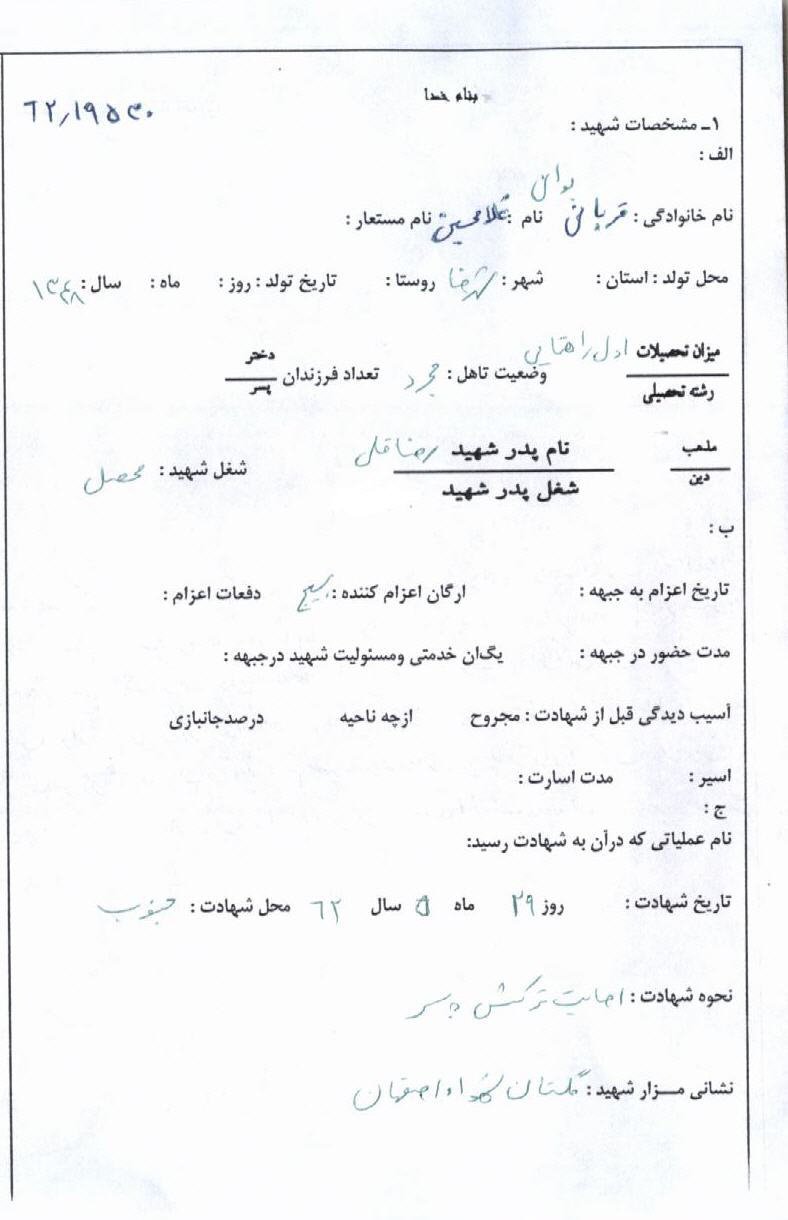 بنام خدا
۶۲/۱۹۵۳۰
۱ـ مشخصات شهید :
الف :
نام خانوادگی : قربانی نام : غلامحسین نام مستعار :
محل تولد : استان : شهر : شهرضا روستا : تاریخ تولد : روز : ماه : سال : ۱۳۴۸
میزان تحصیلات اول راهنمایی
رشته تحصیلی
وضعیت تاهل : مجرد تعداد فرزندان دختر
پسر
مذهب
دین
نام پدر شهید رضاقلی
شغل پدر شهید
شغل شهید : محصل
ب :
تاریخ اعزام به جبهه : ارگان اعزام کننده : بسیج دفعات اعزام :
مدت حضور در جبهه : یگان خدمتی ومسئولیت شهید درجبهه :
آسیب دیدگی قبل از شهادت : مجروح ازچه ناحیه درصدجانبازی
اسیر : مدت اسارت :
ج :
نام عملیاتی که درآن به شهادت رسید:
تاریخ شهادت : روز ۲۹ ماه ۵ سال ۶۲ محل شهادت : جنوب
نحوه شهادت : اصابت ترکش بسر
نشانی مـــزار شهید : گلستان شهدا اصفهان